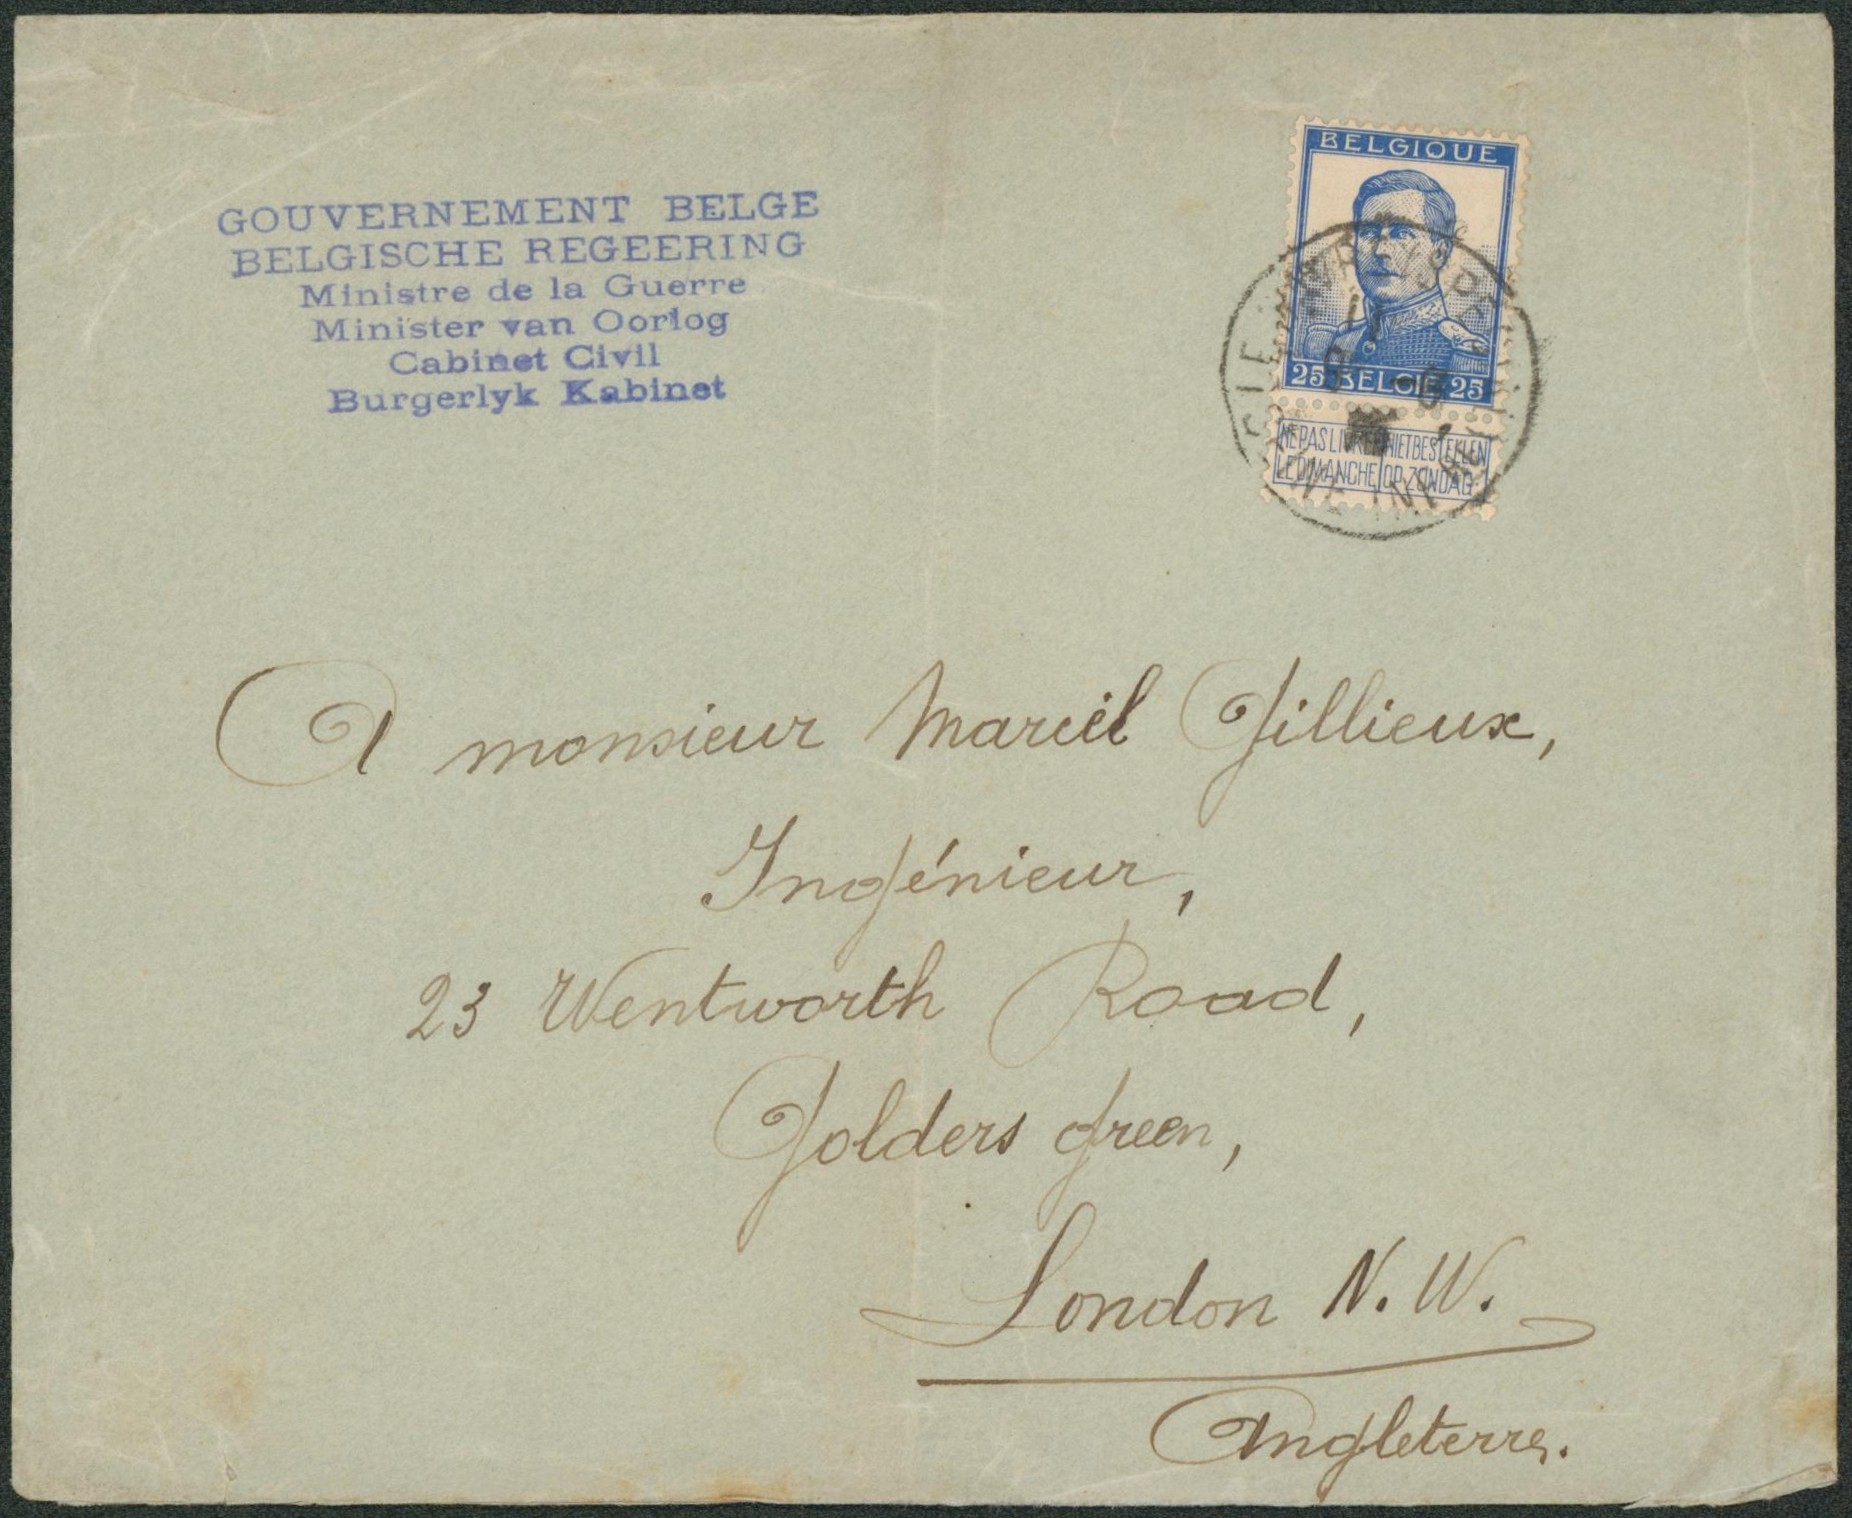 GOUVERNEMENT BELGE
BELGISCHE REGEERING
Ministre de la Guerre
Minister van Oorlog
Cabinet Civil
Burgerlyk Kabinet
BELGIQUE
25 BELGIË 25
NE PAS LIVRER NIET BESTELLEN
LE DIMANCHE OP ZONDAG
A monsieur Marcel Gillieux,
Ingénieur,
23 Wentworth Road,
Golders Green,
London N. W.
Angleterre.